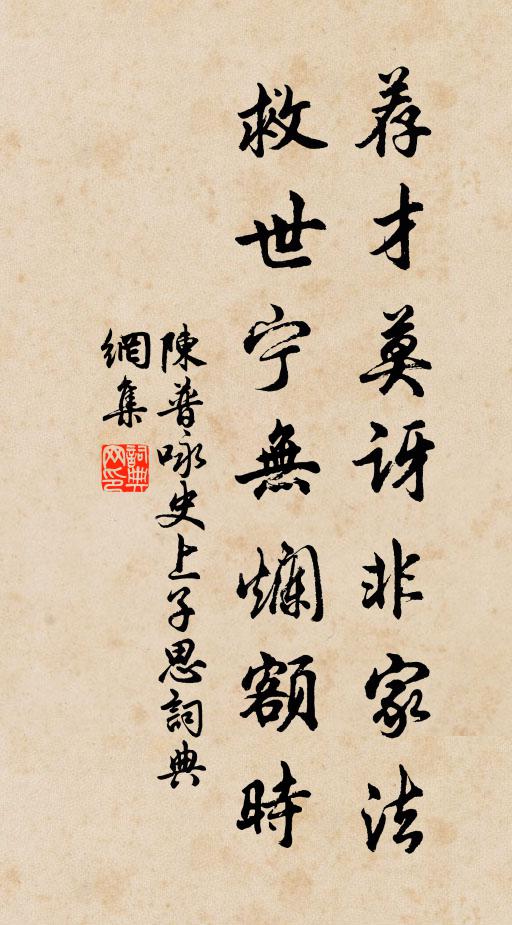 荐才莫讶非家法
救世宁無爛額時
陳普咏史上子思詞典
網集
詞典
网印